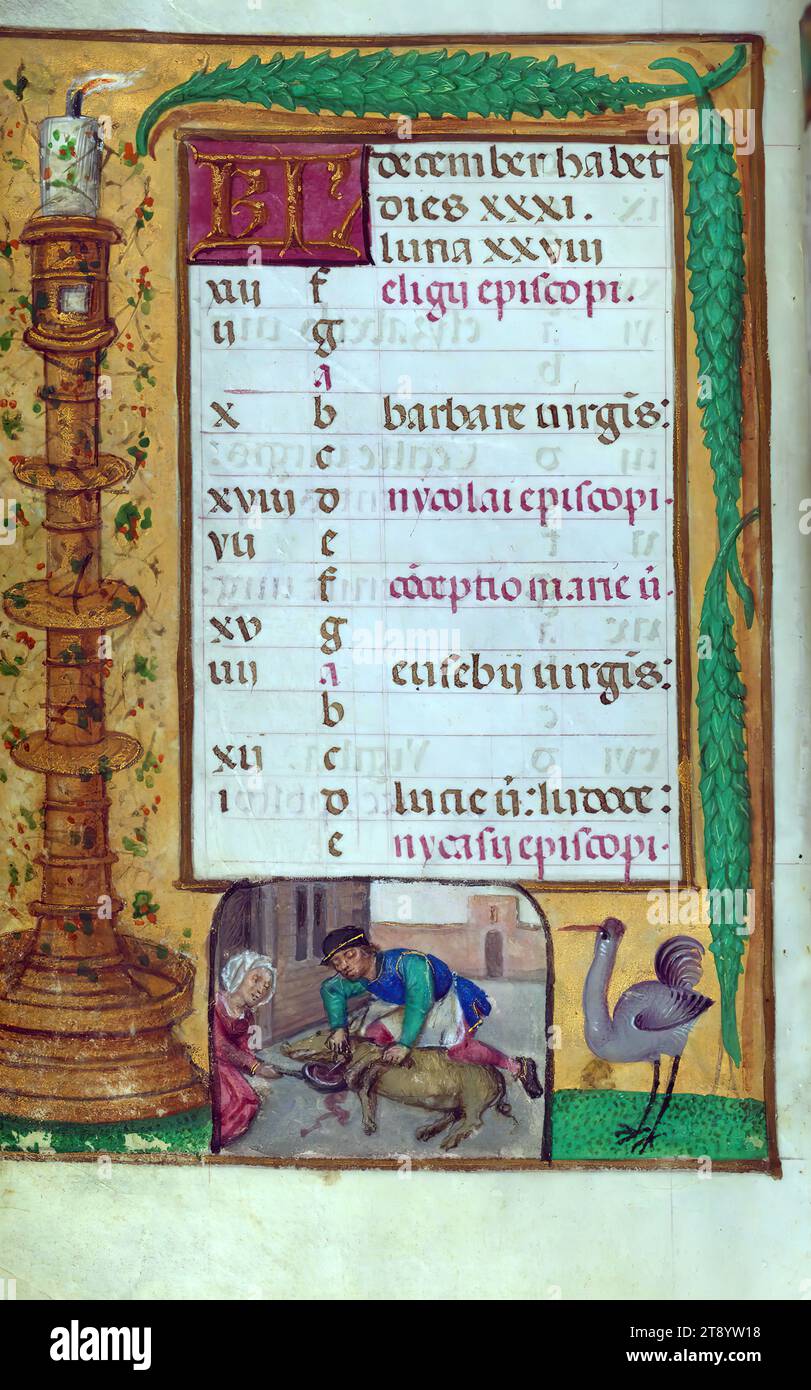 KL december habet
dies xxxi.
luna xxviiij
xiij f eligij episcopi.
ij g
a
x b barbare uirgis:
c
xviij d nycolai episcopi.
vij e
f cōceptio marie ū.
xv g
iiij a eusebij uirgis:
b
xij c
i d lucie ū: iudoce:
e nycasij episcopi.
alamy
Image ID: 2T8YW18
www.alamy.com